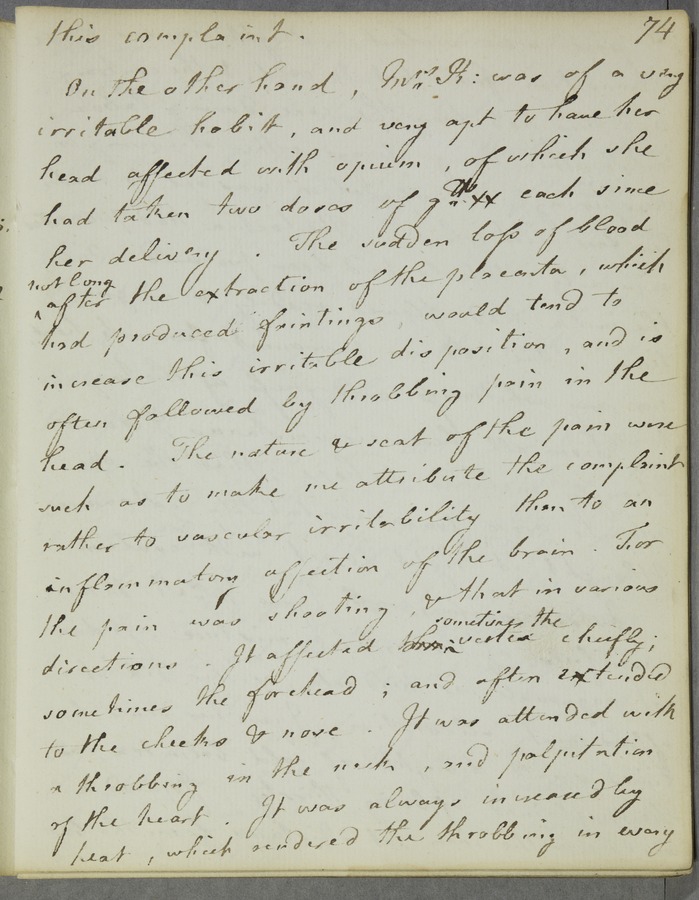 74
this complaint.
On the other hand, Mrs. K: was of a very
irritable habit, and very apt to have her
head affected with opium, of which she
had taken two doses of xx each since
her delivery. The sudden loss of blood
not long
^ after the extraction of the placenta, which
had produced faintings, would tend to
increase this irritable disposition, and is
often followed by throbbing pain in the
head. The nature & seat of the pain were
such as to make me attribute the complaint
rather to vascular irritability than to an
inflammatory affection of the brain. For
the pain was shooting, & that in various
sometimes the
directions. It affected vertex chiefly;
sometimes the forehead; and often extended
to the cheeks & nose. It was attended with
a throbbing in the neck, and palpitation
of the heart. It was always increased by
heat, which rendered the throbbing in every